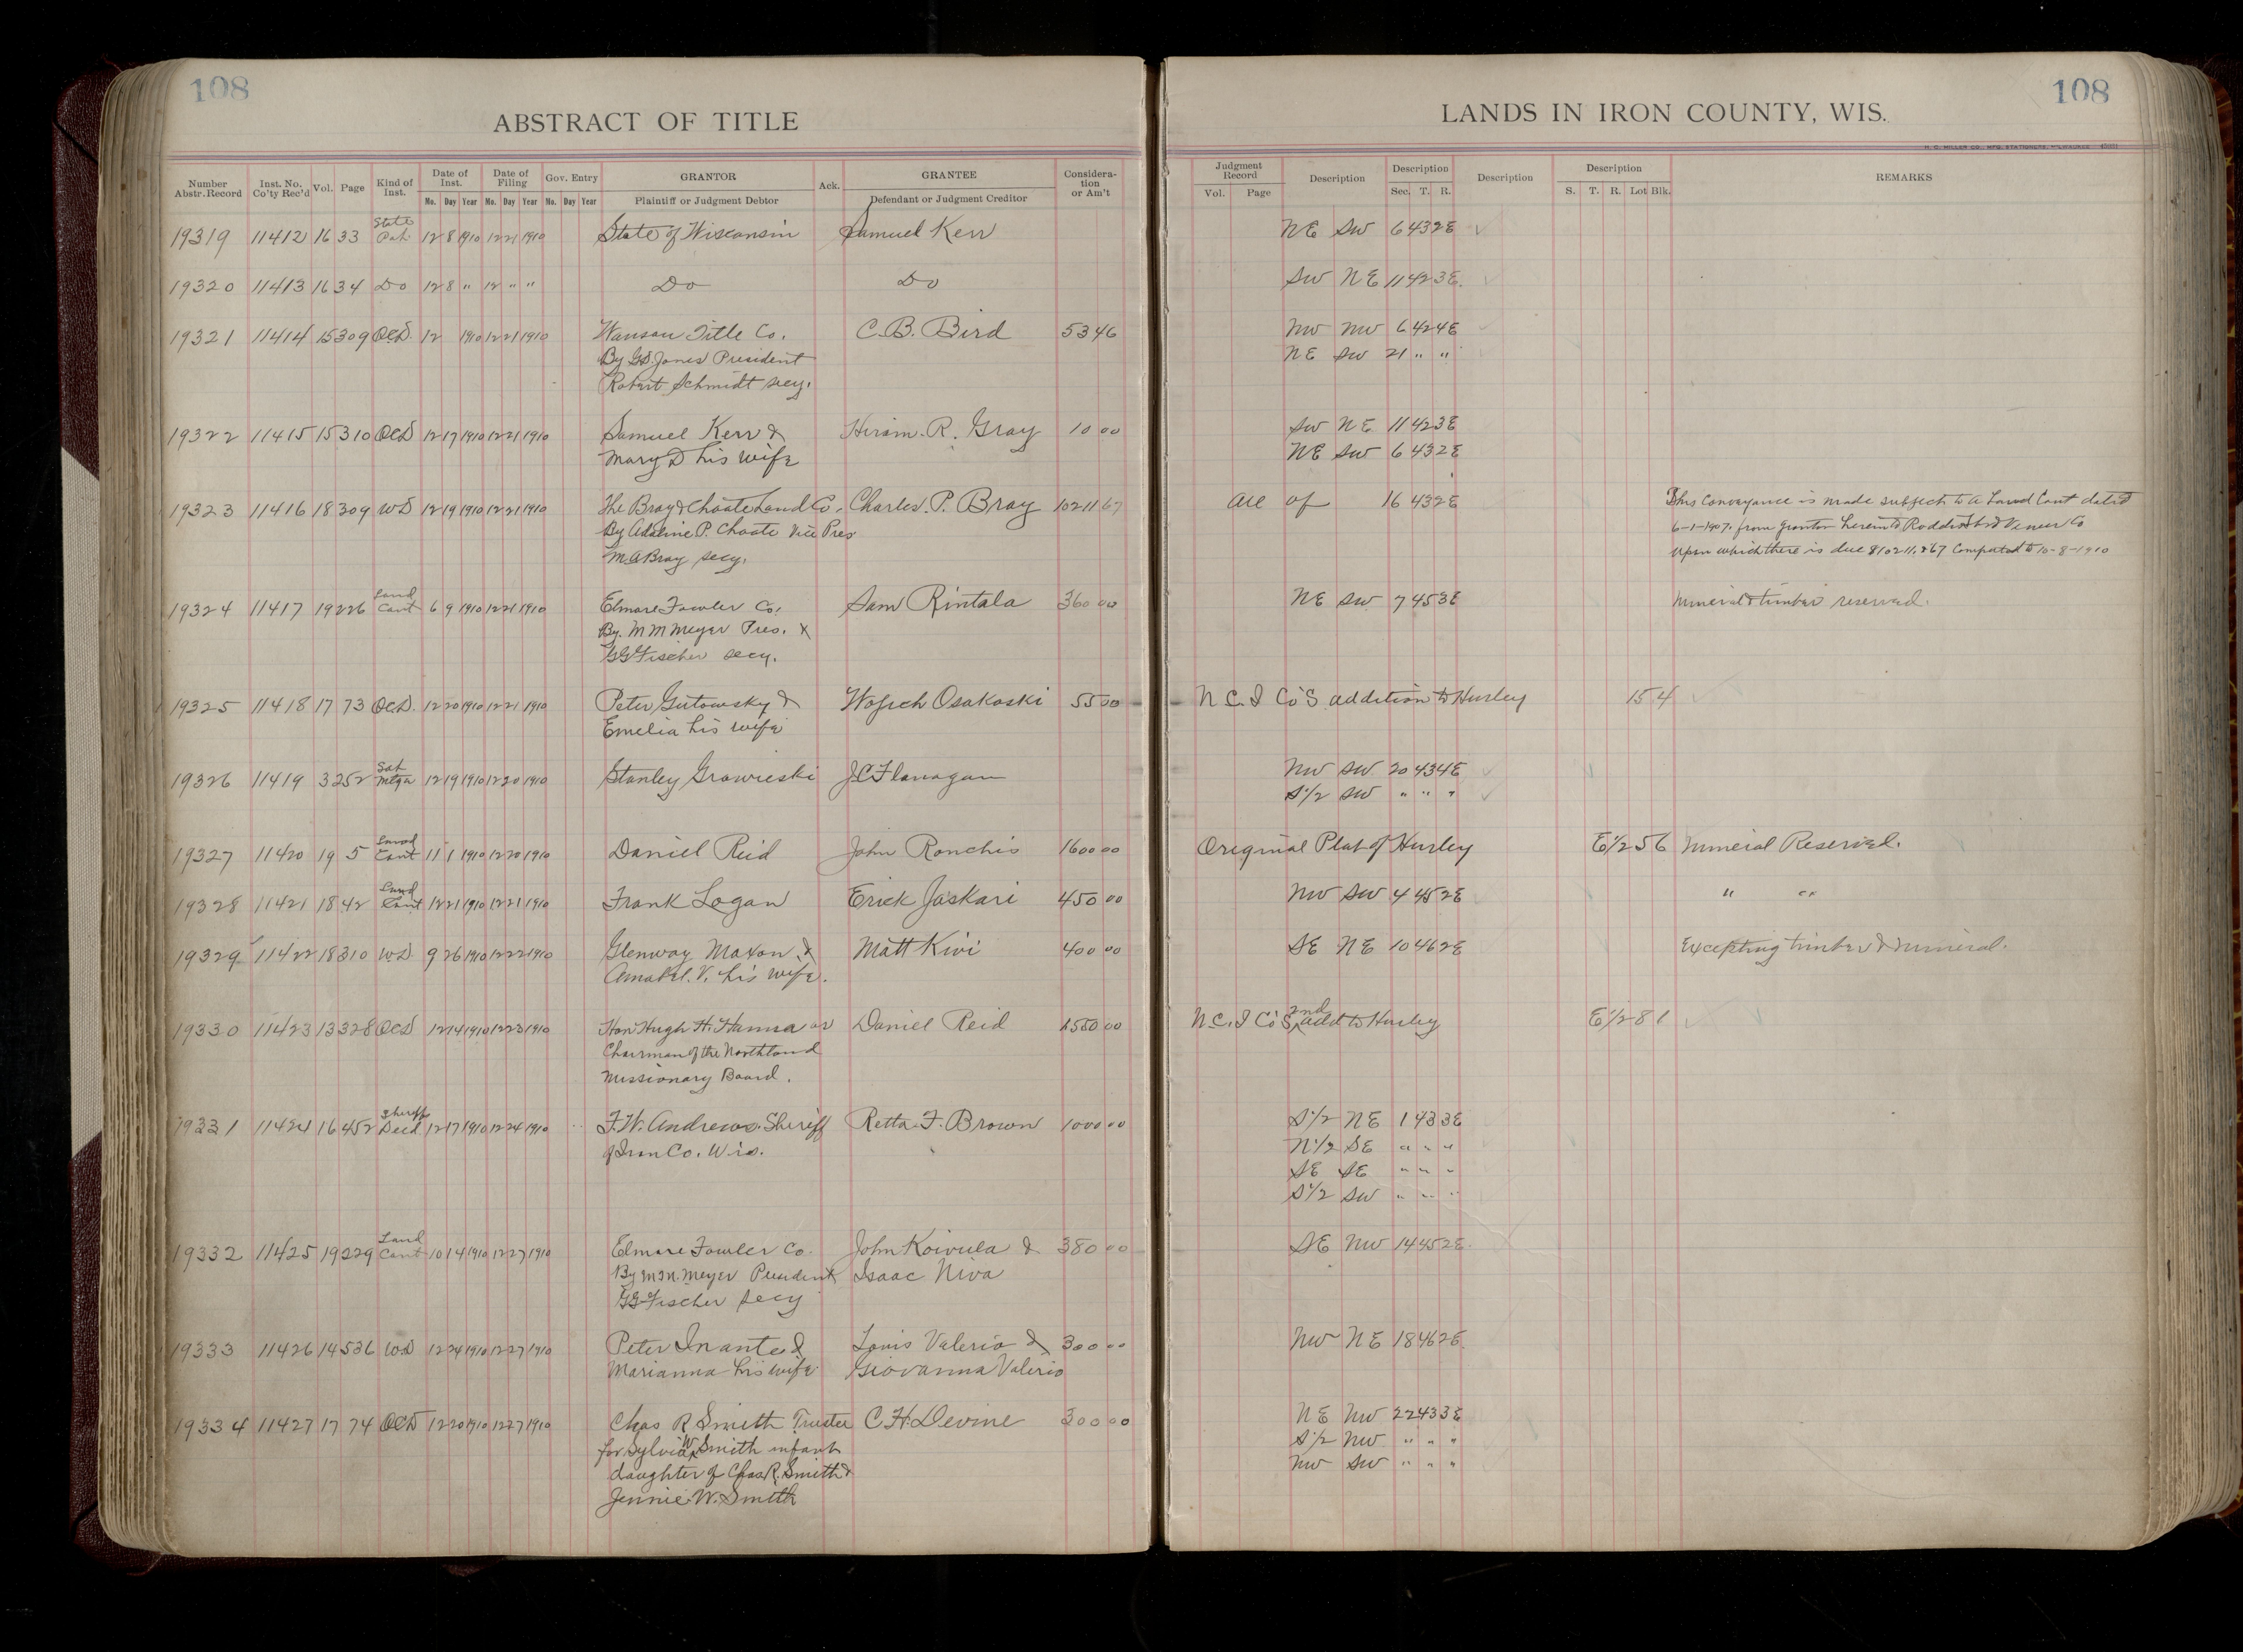 108
ABSTRACT OF TITLE
Number Abstr. Record Inst. No. Co'ty Rec'd Vol. Page Kind of Inst. Date of Inst. Mo. Day Year Date of Filing Mo. Day Year Gov. Entry Mo. Day Year GRANTOR Plaintiff or Judgment Debtor Ack. GRANTEE Defendant or Judgment Creditor Consideration or Am't
19319 11412 16 33 State Pat. 12 8 1910 12 21 1910 State of Wisconsin Samuel Kerr
19320 11413 16 34 Do 12 8 " 12 " " Do Do
19321 11414 15 309 QCD. 12 1910 12 21 1910 Wausau Title Co. C. B. Bird 53 46
By G.D. Jones President
Robert Schmidt secy.
19322 11415 15 310 QCD 12 17 1910 12 21 1910 Samuel Kerr & Hiram. R. Gray 10 00
Mary D his wife
19323 11416 18 309 WD 12 19 1910 12 21 1910 The Bray & Choate Land Co. Charles. P. Bray 10211 67
By Adaline P. Choate Vice Pres
M.A Bray secy.
19324 11417 19 226 Land Cont 6 9 1910 12 21 1910 Elmore Fowler Co. Sam Rintala 360 00
By. M M Meyer Pres. &
GG Fischer secy.
19325 11418 17 73 QCD. 12 20 1910 12 21 1910 Peter Gutowsky & Wojsch Osakoski 55 00
Emelia his wife
19326 11419 3 252 Sat Mtga 12 19 1910 12 20 1910 Stanley Growieski J.C Flanagan
19327 11420 19 5 Land Cont 11 1 1910 12 20 1910 Daniel Reid John Ronchis 1600 00
19328 11421 18 42 Land Cont 12 21 1910 12 21 1910 Frank Logan Erick Jaskari 450 00
19329 11422 18 310 WD. 9 26 1910 12 22 1910 Glenway Maxon & Matt Kivi 400 00
Annabel. V. his wife.
19330 11423 13 328 QCD 12 14 1910 12 23 1910 Hon Hugh H. Hanna as Daniel Reid 1550 00
Chairman of the Northland
Missionary Board.
19331 11424 16 452 Sheriff Deed 12 17 1910 12 24 1910 F.W. Andrews. Sheriff Retta. F. Brown 1000 00
of Iron Co. Wis.
19332 11425 19 229 Land Cont 10 14 1910 12 27 1910 Elmore Fowler Co. John Koivula & 380 00
By M.M. Meyer President Isaac Niva
GG Fischer Secy
19333 11426 14 536 WD 12 24 1910 12 27 1910 Peter Inante & Louis Valerio & 300 00
Marianna his wife Giovanna Valerio
19334 11427 17 74 QCD 12 20 1910 12 27 1910 Chas R Smith Trustee C H. Devine 300 00
for Sylvia W Smith infant
daughter of Chas R. Smith &
Jennie W. Smith
108
LANDS IN IRON COUNTY, WIS.
H. C. MILLER CO., MFG. STATIONERS, MILWAUKEE
Judgment Record Vol. Page Description Description Sec. T. R. Description Description S. T. R. Lot Blk. REMARKS
NE SW 6 43 2E
SW NE 11 42 3E.
NW NW 6 42 4E
NE SW 21 " "
SW NE 11 42 3E
NE SW 6 43 2E
All of 16 43 2E This Conveyance is made subject to a Land Cont dated
6-1-1907. from grantor herein to Veneer Co
upon which there is due $10211.67 Computed to 10-8-1910
NE SW 7 45 3E Mineral & timber reserved.
N.C.I Co's addition to Hurley 15 4
NW SW 20 43 4E
S1/2 SW " " "
Original Plat of Hurley E1/2 5 6 Mineral Reserved.
NW SW 4 45 2E " "
SE NE 10 46 2E Excepting timber & mineral.
N.C.I Co's 2nd add to Hurley E1/2 8 1
S1/2 NE 1 43 3E
N1/2 SE " " "
SE SE " " "
S1/2 SW " " "
SE NW 14 45 2E
NW NE 18 46 2E.
NE NW 22 43 3E
S1/2 NW " " "
NW SW " " "